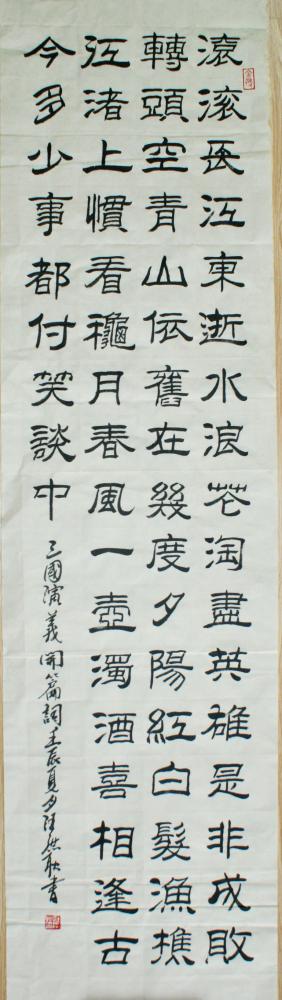 滾滚長江東逝水浪花淘盡英雄是非成敗
轉頭空青山依舊在幾度夕陽紅白髮漁樵
江渚上慣看龝月春風一壺濁酒喜相逢古
今多少事都付笑談中
三國演義開篇詞壬辰夏月書